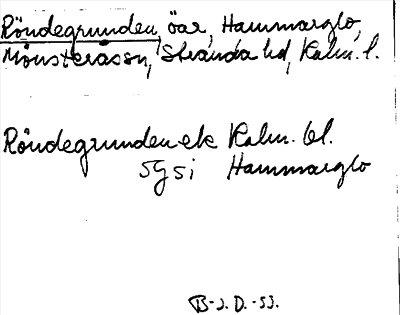 Röndegrunden, öar, Hammarglo,
Mönsterås sn, Stranda hd, Kalm. l.
Röndegrunden ek Kalm. bl.
5g5i Hammarglo
B-J. D. -53.